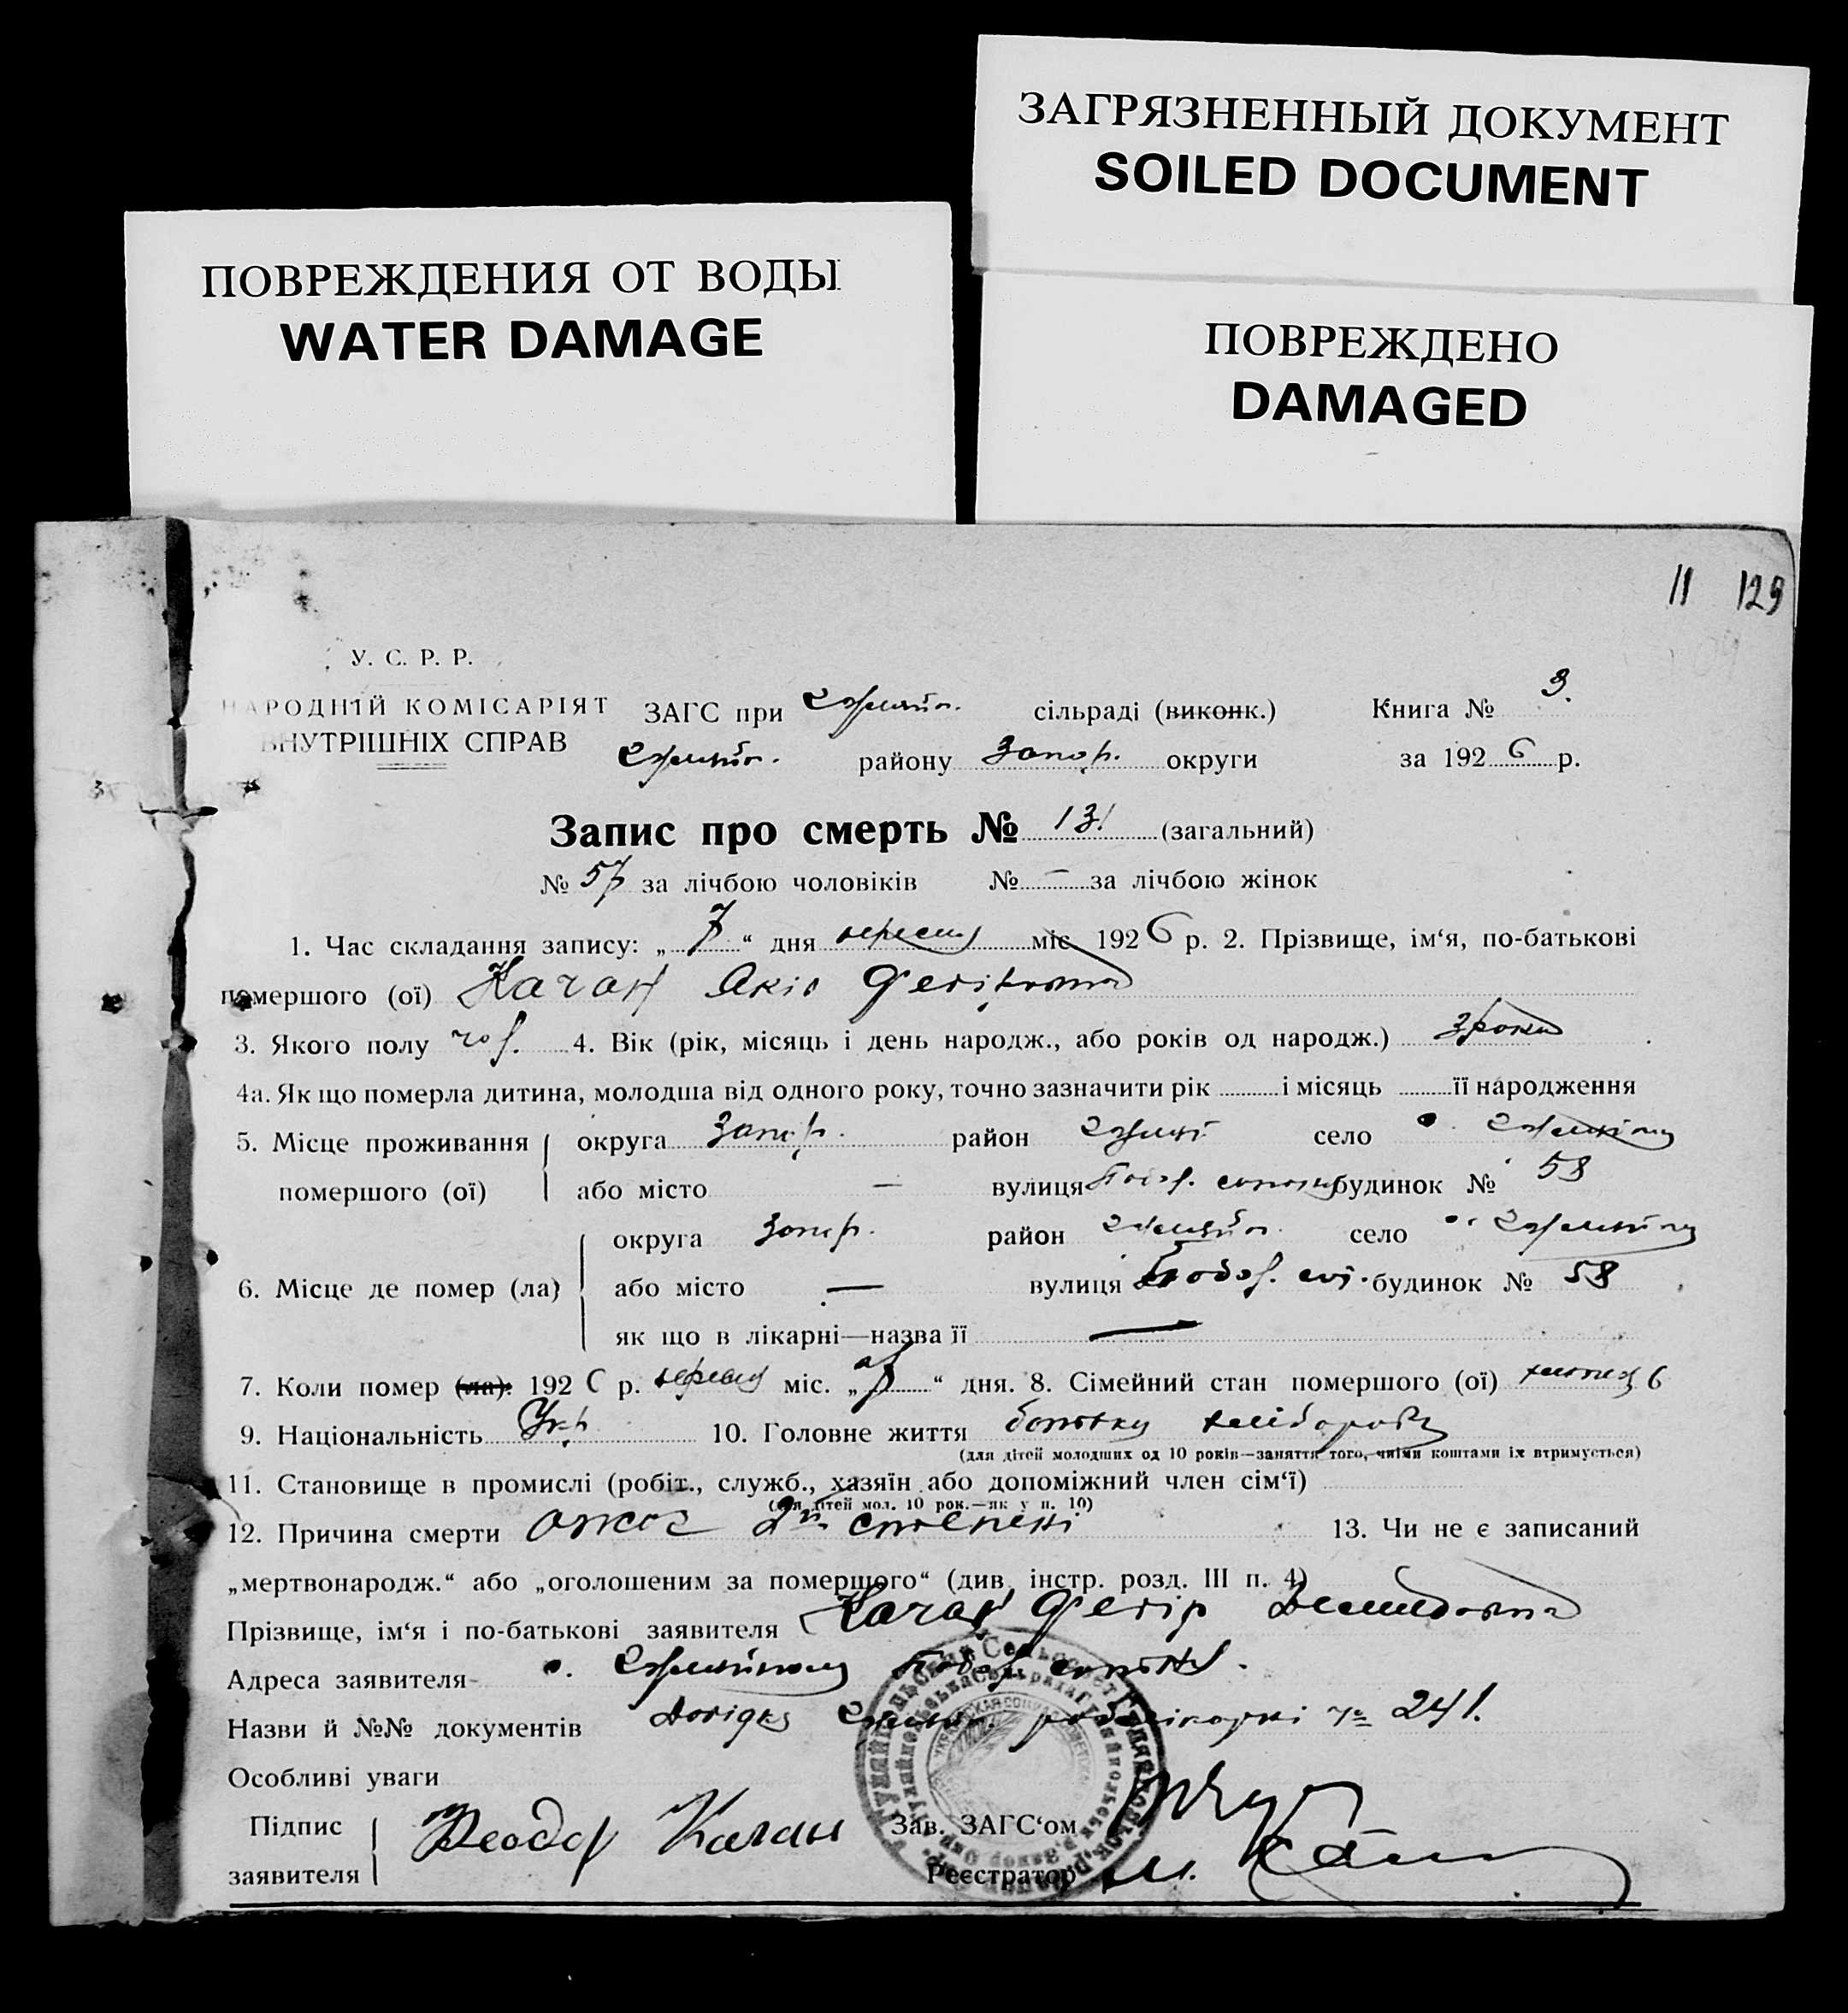 ЗАГРЯЗНЕННЫЙ ДОКУМЕНТ
SOILED DOCUMENT
ПОВРЕЖДЕНИЯ ОТ ВОДЫ
WATER DAMAGE
ПОВРЕЖДЕНО
DAMAGED
11 129
У. С. Р. Р.
НАРОДНІЙ КОМІСАРІЯТ
ВНУТРІШНІХ СПРАВ
ЗАГС при сільраді (виконк.) Книга № 3.
району Запор. округи за 1926 р.
Запис про смерть № 131 (загальний)
№ 57 за лічбою чоловіків № — за лічбою жінок
1. Час складання запису: „7“ дня вересня міс 1926 р. 2. Прізвище, ім‘я, по-батькові
помершого (ої) Качан
3. Якого полу чол. 4. Вік (рік, місяць і день народж., або років од народж.) 3 роки
4а. Як що померла дитина, молодша від одного року, точно зазначити рік і місяць її народження
5. Місце проживання помершого (ої) округа Запор. район село с.
або місто — вулиця будинок № 58
6. Місце де помер (ла) округа Запор. район село с.
або місто — вулиця будинок № 58
як що в лікарні—назва її —
7. Коли помер (ла): 1926 р. вересня міс. „ “ дня. 8. Сімейний стан помершого (ої)
9. Національність Укр. 10. Головне життя
(для дітей молодших од 10 років—заняття того, чиїми коштами їх втримується)
11. Становище в промислі (робіт., служб., хазяїн або допоміжний член сім‘ї)
(для дітей мол. 10 рок.—як у п. 10)
12. Причина смерти ожог 2й степені 13. Чи не є записаний
„мертвонародж.“ або „оголошеним за помершого“ (див. інстр. розд. III п. 4)
Прізвище, ім‘я і по-батькові заявителя Качан Федір Демидович
Адреса заявителя с.
Назви й №№ документів Довідка № 241.
Особливі уваги
Підпис заявителя Феодор Качан Зав. ЗАГС‘ом
Реєстратор